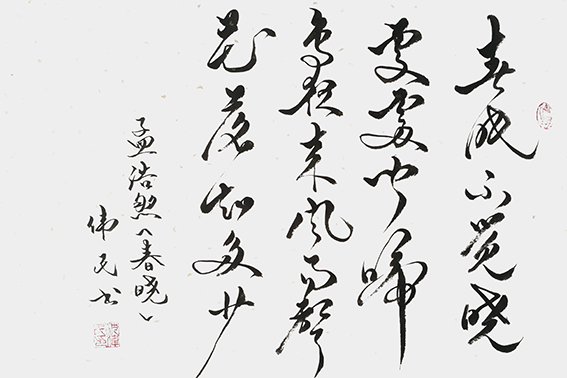 春眠不觉晓
处处闻啼
鸟夜来风雨聲
花落知多少
孟浩然《春晓》
伟民书